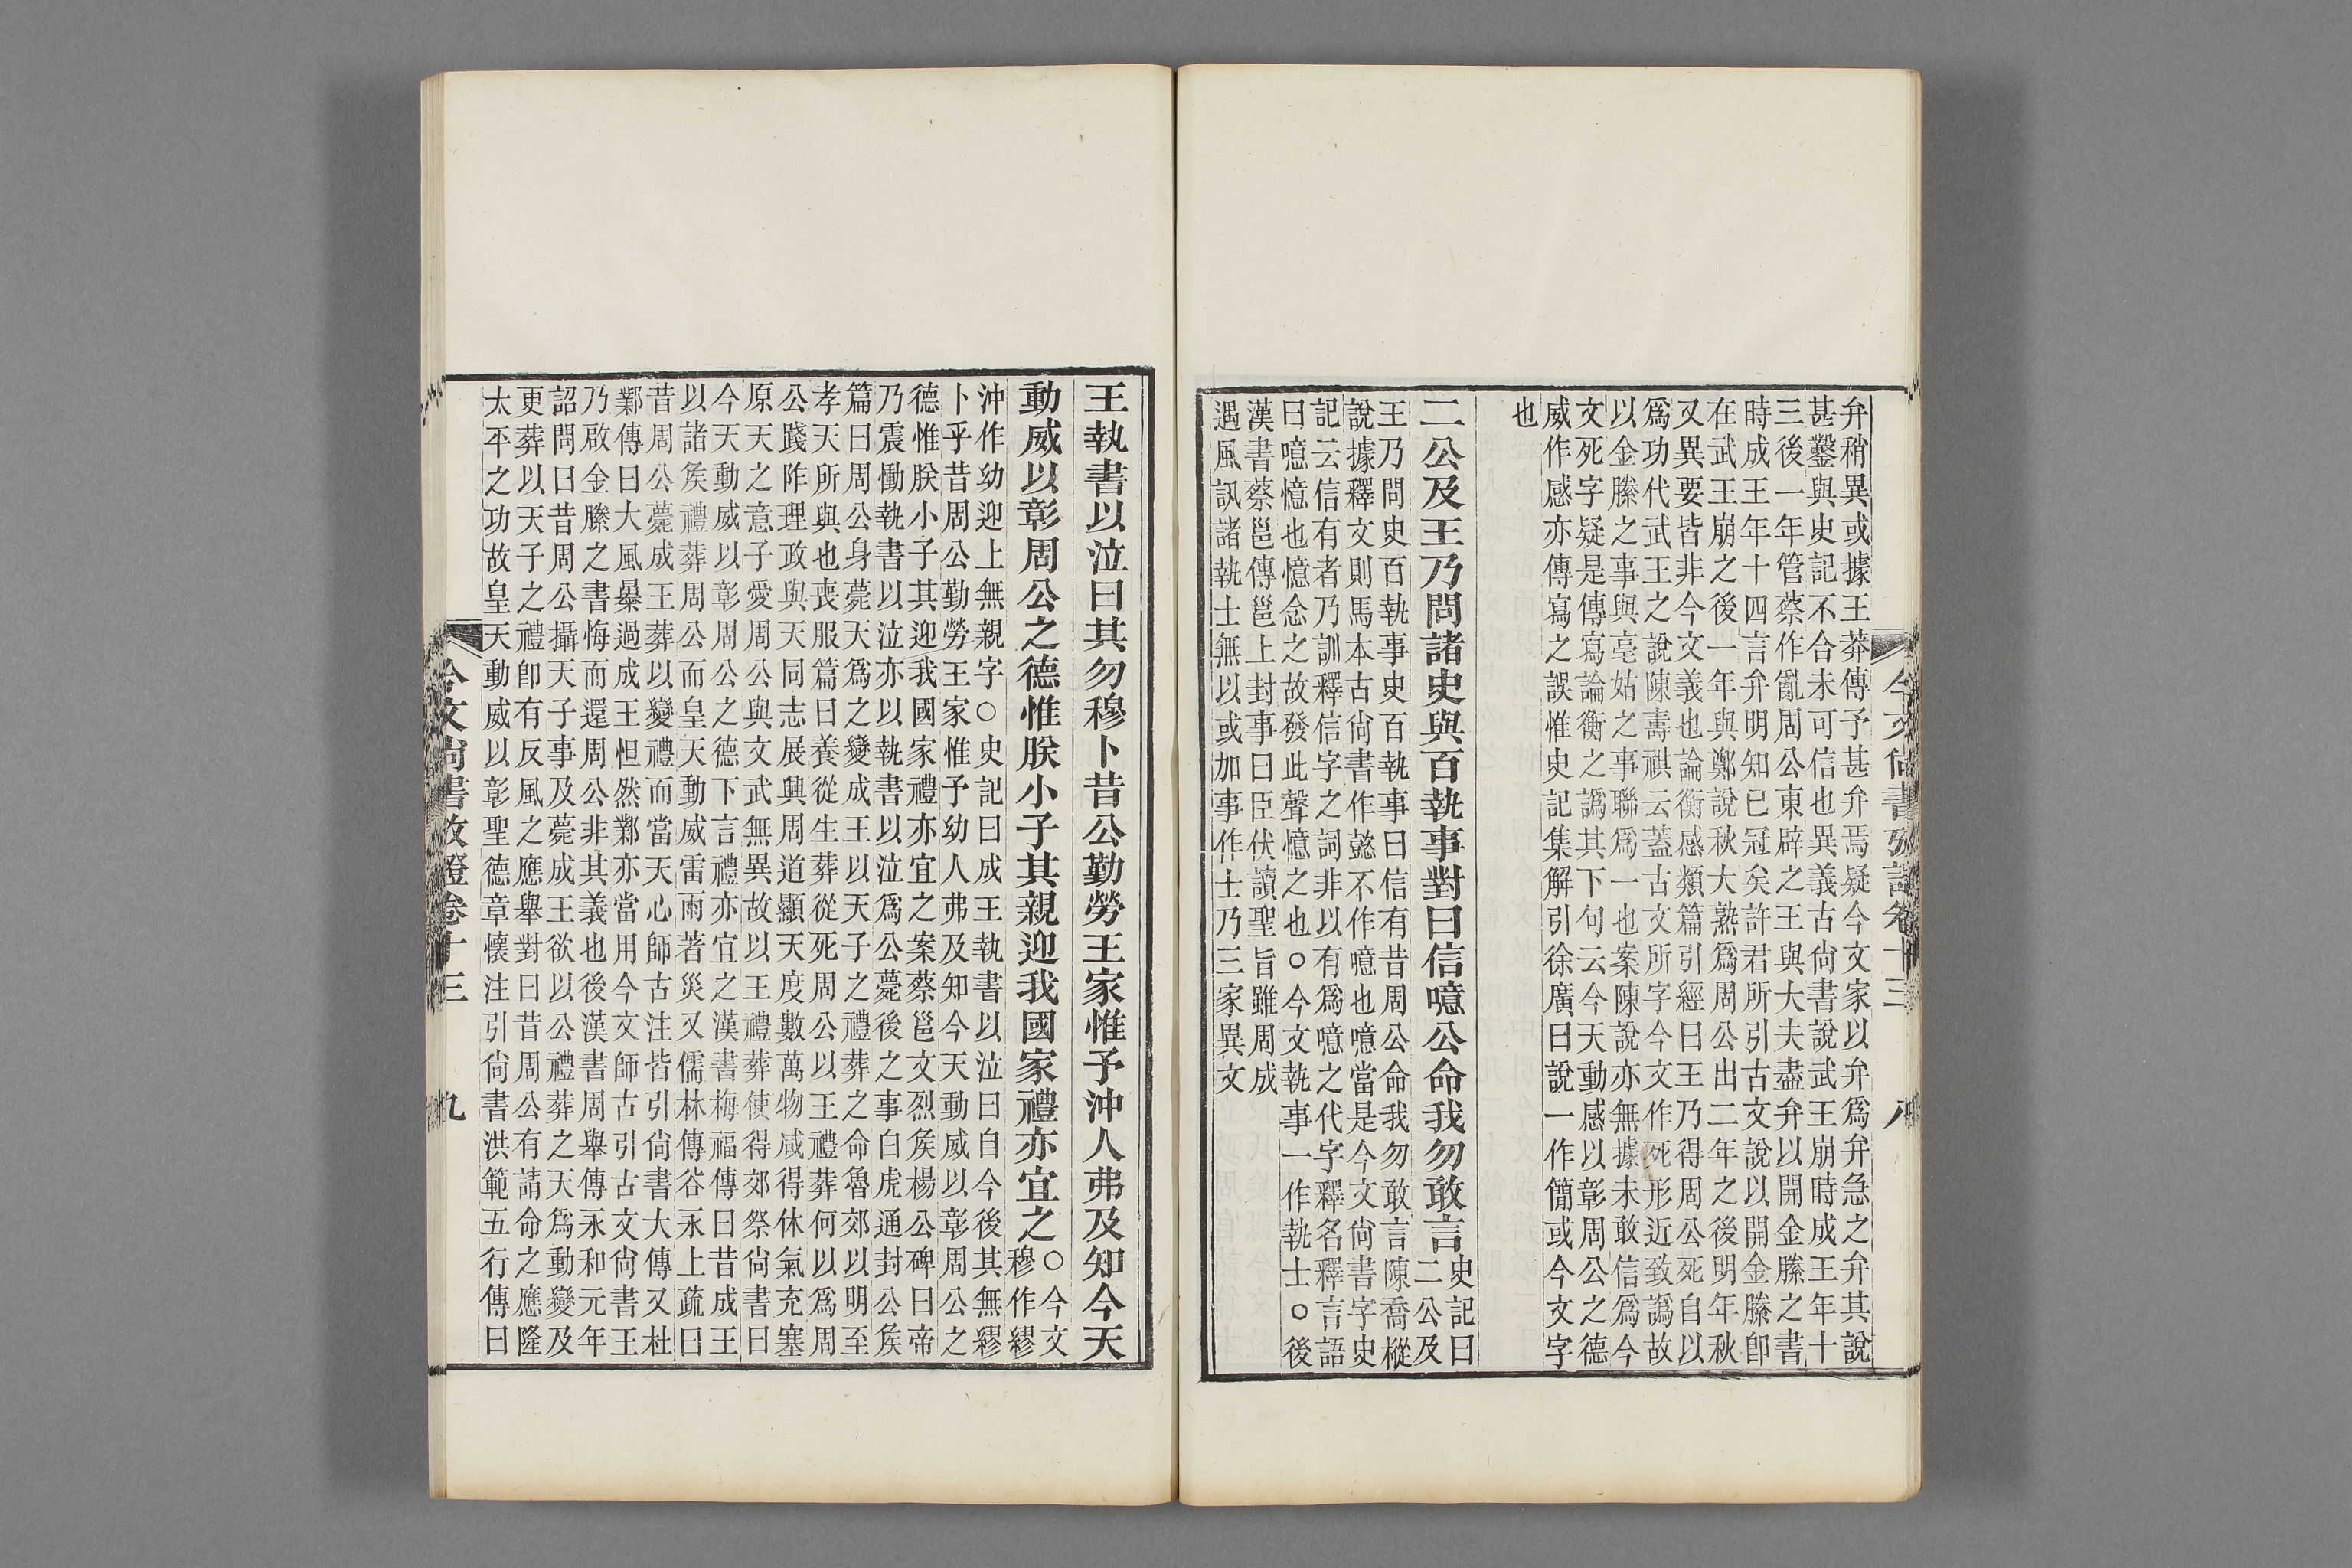 弁稍異或據王莽傳予甚弁焉疑今文家以弁爲弁急之弁其說
甚鑿與史記不合未可信也異義古尙書說武王崩時成王年十
三後一年管蔡作亂周公東辟之王與大夫盡弁以開金縢之書
時成王年十四言弁明知已冠矣許君所引古文說以開金縢卽
在武王崩之後一年與鄭說秋大熟爲周公出二年之後明年秋
又異要皆非今文義也論衡感類篇引經曰王乃得周公死自以
爲功代武王之說陳壽祺云蓋古文所字今文作死形近致譌故
以金縢之事與亳姑之事聯爲一也案陳說亦無據未敢信爲今
文死字疑是傳寫論衡之譌其下句云今天動感以彰周公之德
威作感亦傳寫之誤惟史記集解引徐廣曰說一作簡或今文字
也
二公及王乃問諸史與百執事對曰信噫公命我勿敢言
史記曰
二公及
王乃問史百執事史百執事曰信有昔周公命我勿敢言陳喬樅
說據釋文則馬本古尙書作懿不作噫也噫當是今文尙書字史
記云信有者乃訓釋信字之詞非以有爲噫之代字釋名釋言語
曰噫憶也憶念之故發此聲憶之也○今文執事一作執士○後
漢書蔡邕傳邕上封事曰臣伏讀聖旨雖周成
遇風訊諸執士無以或加事作士乃三家異文
今文尙書攷證卷十三
八
王執書以泣曰其勿穆卜昔公勤勞王家惟予沖人弗及知今天
動威以彰周公之德惟朕小子其親迎我國家禮亦宜之
○今文
穆作繆
沖作幼迎上無親字○史記曰成王執書以泣曰自今後其無繆
卜乎昔周公勤勞王家惟予幼人弗及知今天動威以彰周公之
德惟朕小子其迎我國家禮亦宜之案蔡邕文烈矦楊公碑曰帝
乃震慟執書以泣亦以執書以泣爲公薨後之事白虎通封公矦
篇曰周公身薨天爲之變成王以天子之禮葬之命魯郊以明至
孝天所與也喪服篇曰養從生葬從死周公以王禮葬何以爲周
公踐阼理政與天同志展興周道顯天度數萬物咸得休氣充塞
原天之意子愛周公與文武無異故以王禮葬使得郊祭尙書曰
今天動威以彰周公之德下言禮亦宜之漢書梅福傳曰昔成王
以諸矦禮葬周公而皇天動威雷雨著災又儒林傳谷永上疏曰
昔周公薨成王葬以變禮而當天心師古注皆引尙書大傳又杜
鄴傳曰大風暴過成王怛然鄴亦當用今文師古引古文尙書王
乃啟金縢之書悔而還周公非其義也後漢書周舉傳永和元年
詔問曰昔周公攝天子事及薨成王欲以公禮葬之天爲動變及
更葬以天子之禮卽有反風之應舉對曰昔周公有請命之應隆
太平之功故皇天動威以彰聖德章懷注引尙書洪範五行傳曰
今文尙書攷證卷十三
九